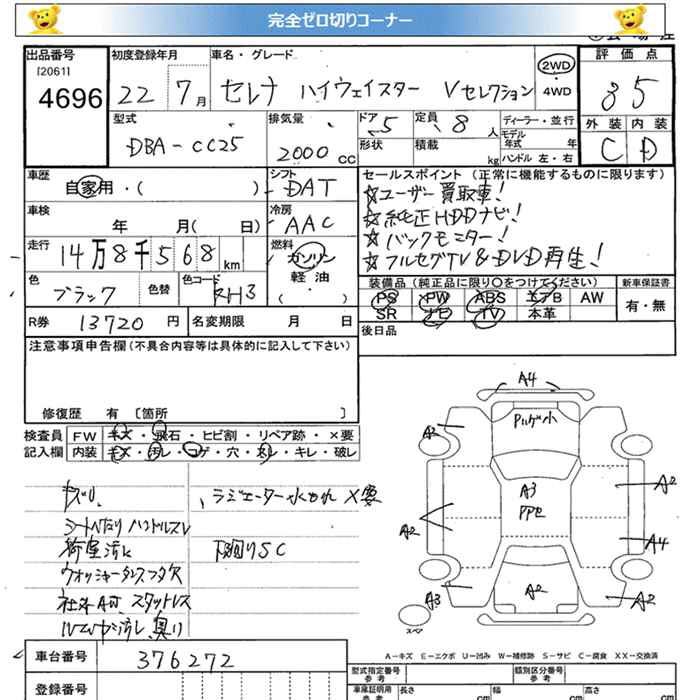 完全ゼロ切りコーナー
出品番号 初度登録年月 車名・グレード 評価点
[2061]
4696 22 7月 セレナ ハイウェイスター Vセレクション 2WD 4WD 35
型式 排気量 ドア 5 定員 8人 ディーラー・並行 外装 内装
DBA-CC25 2000cc 形状 積載 kg モデル年式 年 C D
ハンドル 左・右
車歴 シフト セールスポイント(正常に機能するものに限ります)
自家用・( ) DAT ☆ユーザー買取車!
車検 冷房 ☆純正HDDナビ!
年 月( 日) AAC ☆バックモニター!
走行 燃料 ☆フルセグTV&DVD再生!
14万8千568km ガソリン
軽油
色 色替 色コード ・( )
ブラック KH3
装備品(純正品に限り○をつけてください) 新車保証書
PS PW ABS エアB AW 有・無
SR ナビ TV 本革
R券 13720円 名変期限 月 日 後日品
注意事項申告欄(不具合内容等は具体的に記入して下さい)
修復歴 有 [箇所 ]
検査員 FW キズ・飛石・ヒビ割・リペア跡・×要
記入欄 内装 キズ・汚レ・コゲ・穴・スレ・キレ・破レ
ラジエーター水もれ ×要
下廻りSC
荷室汚れ
ウォッシャータンクフタ欠
A4
A2
A3
A2
A2
A4
A2
A3
A2
スペア
A-キズ E-エクボ U-凹み W-補修跡 S-サビ C-腐食 XX-交換済
車台番号 376272
登録番号
型式指定番号 参考 類別区分番号 参考
車庫証明用 参考 長さ cm 幅 cm 高さ cm